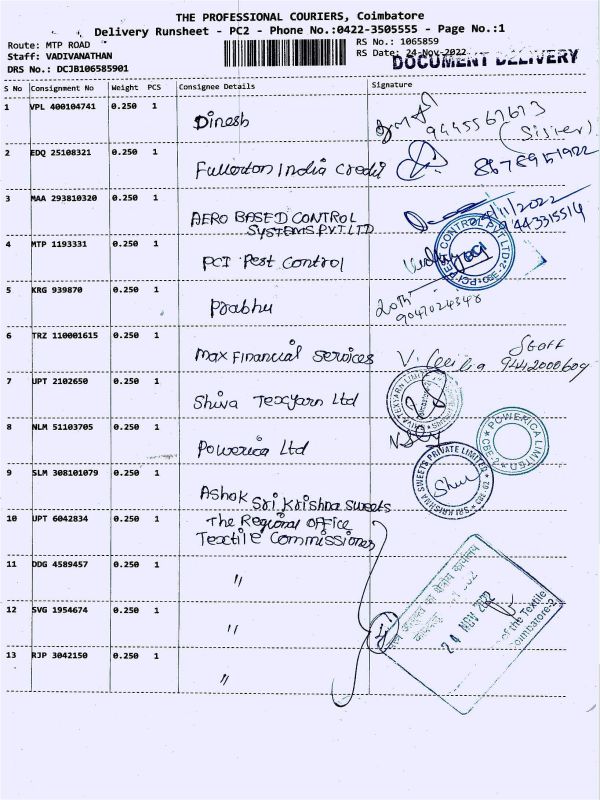 THE PROFESSIONAL COURIERS, Coimbatore
Delivery Runsheet - PC2 - Phone No.:0422-3505555 - Page No.:1
Route: MTP ROAD
Staff: VADIVANATHAN
DRS No.: DCJB106585901
RS No.: 1065859
RS Date: 24-Nov-2022
DOCUMENT DELIVERY
S No Consignment No Weight PCS Consignee Details Signature
1 VPL 400104741 0.250 1 Dinesh 9445567673 (Sister)
2 EDQ 25108321 0.250 1 Fullerton India Credit 8678951922
3 MAA 293810320 0.250 1 AERO BASED CONTROL SYSTEMS PVT LTD /11/2022 9443315514
4 MTP 1193331 0.250 1 PCI Pest Control
PCI PEST CONTROL PVT LTD CBE-2
5 KRG 939870 0.250 1 Prabhu 9047024348
6 TRZ 110001615 0.250 1 Max Financial Services V. Cecilia 9442000609
7 UPT 2102650 0.250 1 Shiva Texyarn Ltd
SHIVA TEXYARN LIMITED
8 NLM 51103705 0.250 1 Powerica Ltd
POWERICA LIMITED CBE-2
9 SLM 308101079 0.250 1 Ashok Sri Krishna Sweets
SRI KRISHNA SWEETS PRIVATE LIMITED CBE-02
10 UPT 6042834 0.250 1 The Regional Office
Textile Commissioner
11 DDG 4589457 0.250 1 "
12 SVG 1954674 0.250 1 "
13 RJP 3042150 0.250 1 "
24 NOV 2022
of the Textile
Coimbatore-2